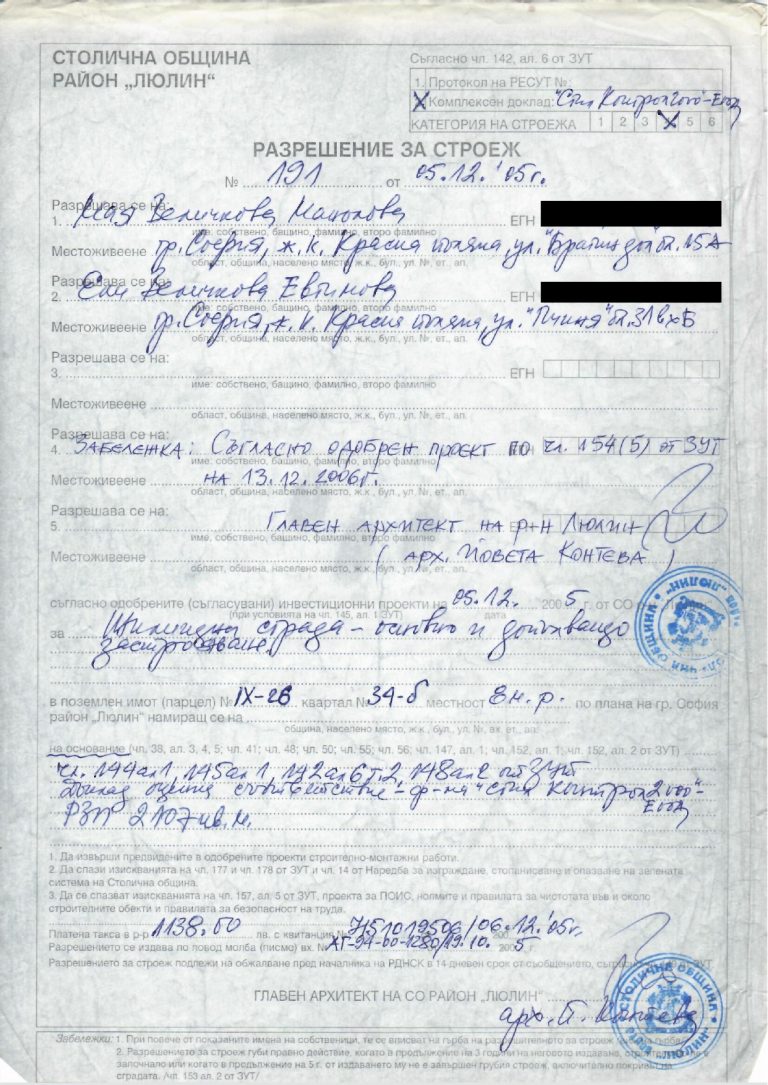 СТОЛИЧНА ОБЩИНА
РАЙОН „ЛЮЛИН“
Съгласно чл. 142, ал. 6 от ЗУТ
1. Протокол на РЕСУТ №:
X Комплексен доклад: "Стил Контрол 2000"-ЕООД
КАТЕГОРИЯ НА СТРОЕЖА 1 2 3 X 5 6
РАЗРЕШЕНИЕ ЗА СТРОЕЖ
№ 191 от 05.12.'05г.
Разрешава се на:
1. Мая Величкова Манолова ЕГН
име: собствено, бащино, фамилно, второ фамилно
Местоживеене гр. София, ж.к. Красна поляна, ул. бл. 15А
област, община, населено място, ж.к., бул., ул. №, ет., ап.
Разрешава се на:
2. Ели Величкова Евтимова ЕГН
име: собствено, бащино, фамилно, второ фамилно
Местоживеене гр. София, ж.к. Красна поляна, ул. "Пчиня" бл. 31 вх Б
област, община, населено място, ж.к., бул., ул. №, ет., ап.
Разрешава се на:
3. ЕГН
име: собствено, бащино, фамилно, второ фамилно
Местоживеене
област, община, населено място, ж.к., бул., ул. №, ет., ап.
Разрешава се на:
4. ЗАБЕЛЕЖКА: СЪГЛАСНО ОДОБРЕН ПРОЕКТ ПО чл. 154(5) от ЗУТ
име: собствено, бащино, фамилно, второ фамилно
Местоживеене НА 13.12.2006г.
област, община, населено място, ж.к., бул., ул. №, ет., ап.
Разрешава се на:
5. ГЛАВЕН АРХИТЕКТ НА Р-Н ЛЮЛИН
име: собствено, бащино, фамилно, второ фамилно
Местоживеене (АРХ. ЙОВЕТА КОНТЕВА)
област, община, населено място, ж.к., бул., ул. №, ет., ап.
съгласно одобрените (съгласувани) инвестиционни проекти на 05.12. 2005 г. от СО
(при условията на чл. 145, ал. 1 ЗУТ) дата
за Жилищна сграда - основно и допълващо
застрояване
в поземлен имот (парцел) № IX-26 квартал № 34-б местност 8 м.р. по плана на гр. София
район „Люлин“ намиращ се на
община, населено място, ж.к., бул., ул. №, вх. ет., ап.
на основание (чл. 38, ал. 3, 4, 5; чл. 41; чл. 48; чл. 50; чл. 55; чл. 56; чл. 147, ал. 1; чл. 152, ал. 1; чл. 152, ал. 2 от ЗУТ)
чл. 144 ал 1, 145 ал 1, 142 ал 6 т. 2, 148 ал 2 от ЗУТ
Доклад оценка съответствие - ф-ма "Стил Контрол 2000"-
ЕООД
РЗП 2107 кв. м.
1. Да извърши предвидените в одобрените проекти строително-монтажни работи.
2. Да спази изискванията на чл. 177 и чл. 178 от ЗУТ и чл. 14 от Наредба за изграждане, стопанисване и опазване на зелената
система на Столична община.
3. Да се спазят изискванията на чл. 157, ал. 5 от ЗУТ, проекта за ПОИС, нолмите и правилата за чистотата във и около
строителните обекти и правилата за безопасност на труда.
Платена такса в р-р 1138.00 лв. с квитанция № 751019506/06.12.'05г.
Разрешението се издава по повод молба (писмо) вх. № АГ-94-00-1280/19.10. 2005
Разрешението за строеж подлежи на обжалване пред началника на РДНСК в 14 дневен срок от съобщението, съгласно от ЗУТ
ГЛАВЕН АРХИТЕКТ НА СО РАЙОН „ЛЮЛИН“
арх. П. Контева
СТОЛИЧНА ОБЩИНА
Забележки: 1. При повече от показаните имена на собственици, те се вписват на гърба на разрешителното за строеж
2. Разрешението за строеж губи правно действие, когато в продължение на 3 години на неговото издаване, строителството не е
започнало или когато в продължение на 5 г. от издаването му не е завършен грубия строеж, включително покрива на
сградата. /чл. 153 ал. 2 от ЗУТ/